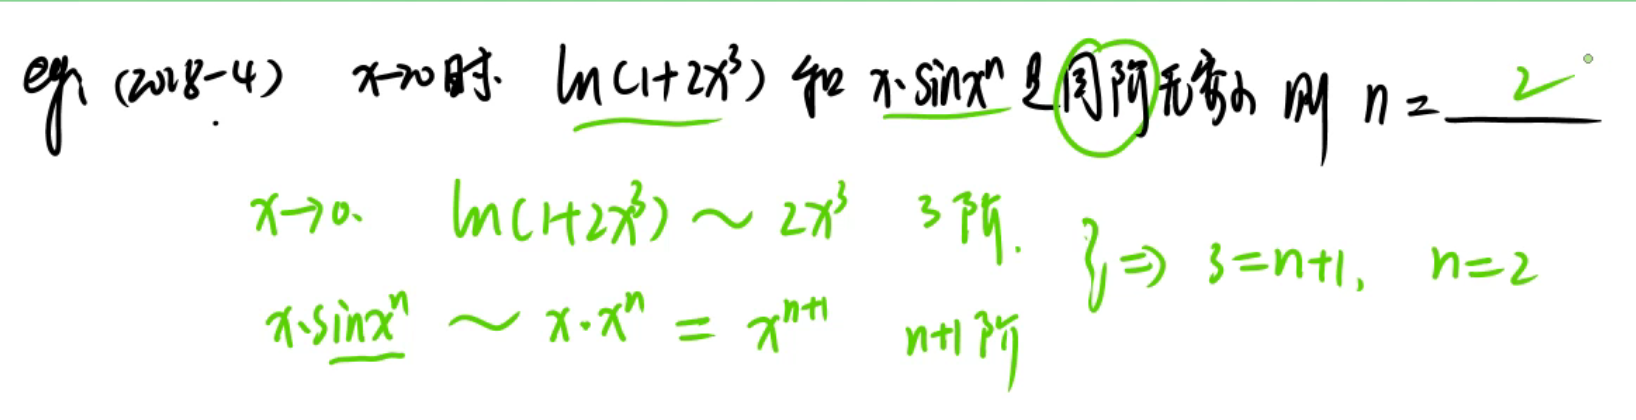 eg. (2028-4) x→0时. ln(1+2x³) 和 x·sinxⁿ 是同阶无穷小 则 n = 2
x→0. ln(1+2x³) ~ 2x³ 3阶.
x·sinxⁿ ~ x·xⁿ = xⁿ⁺¹ n+1阶
} ⇒ 3=n+1, n=2